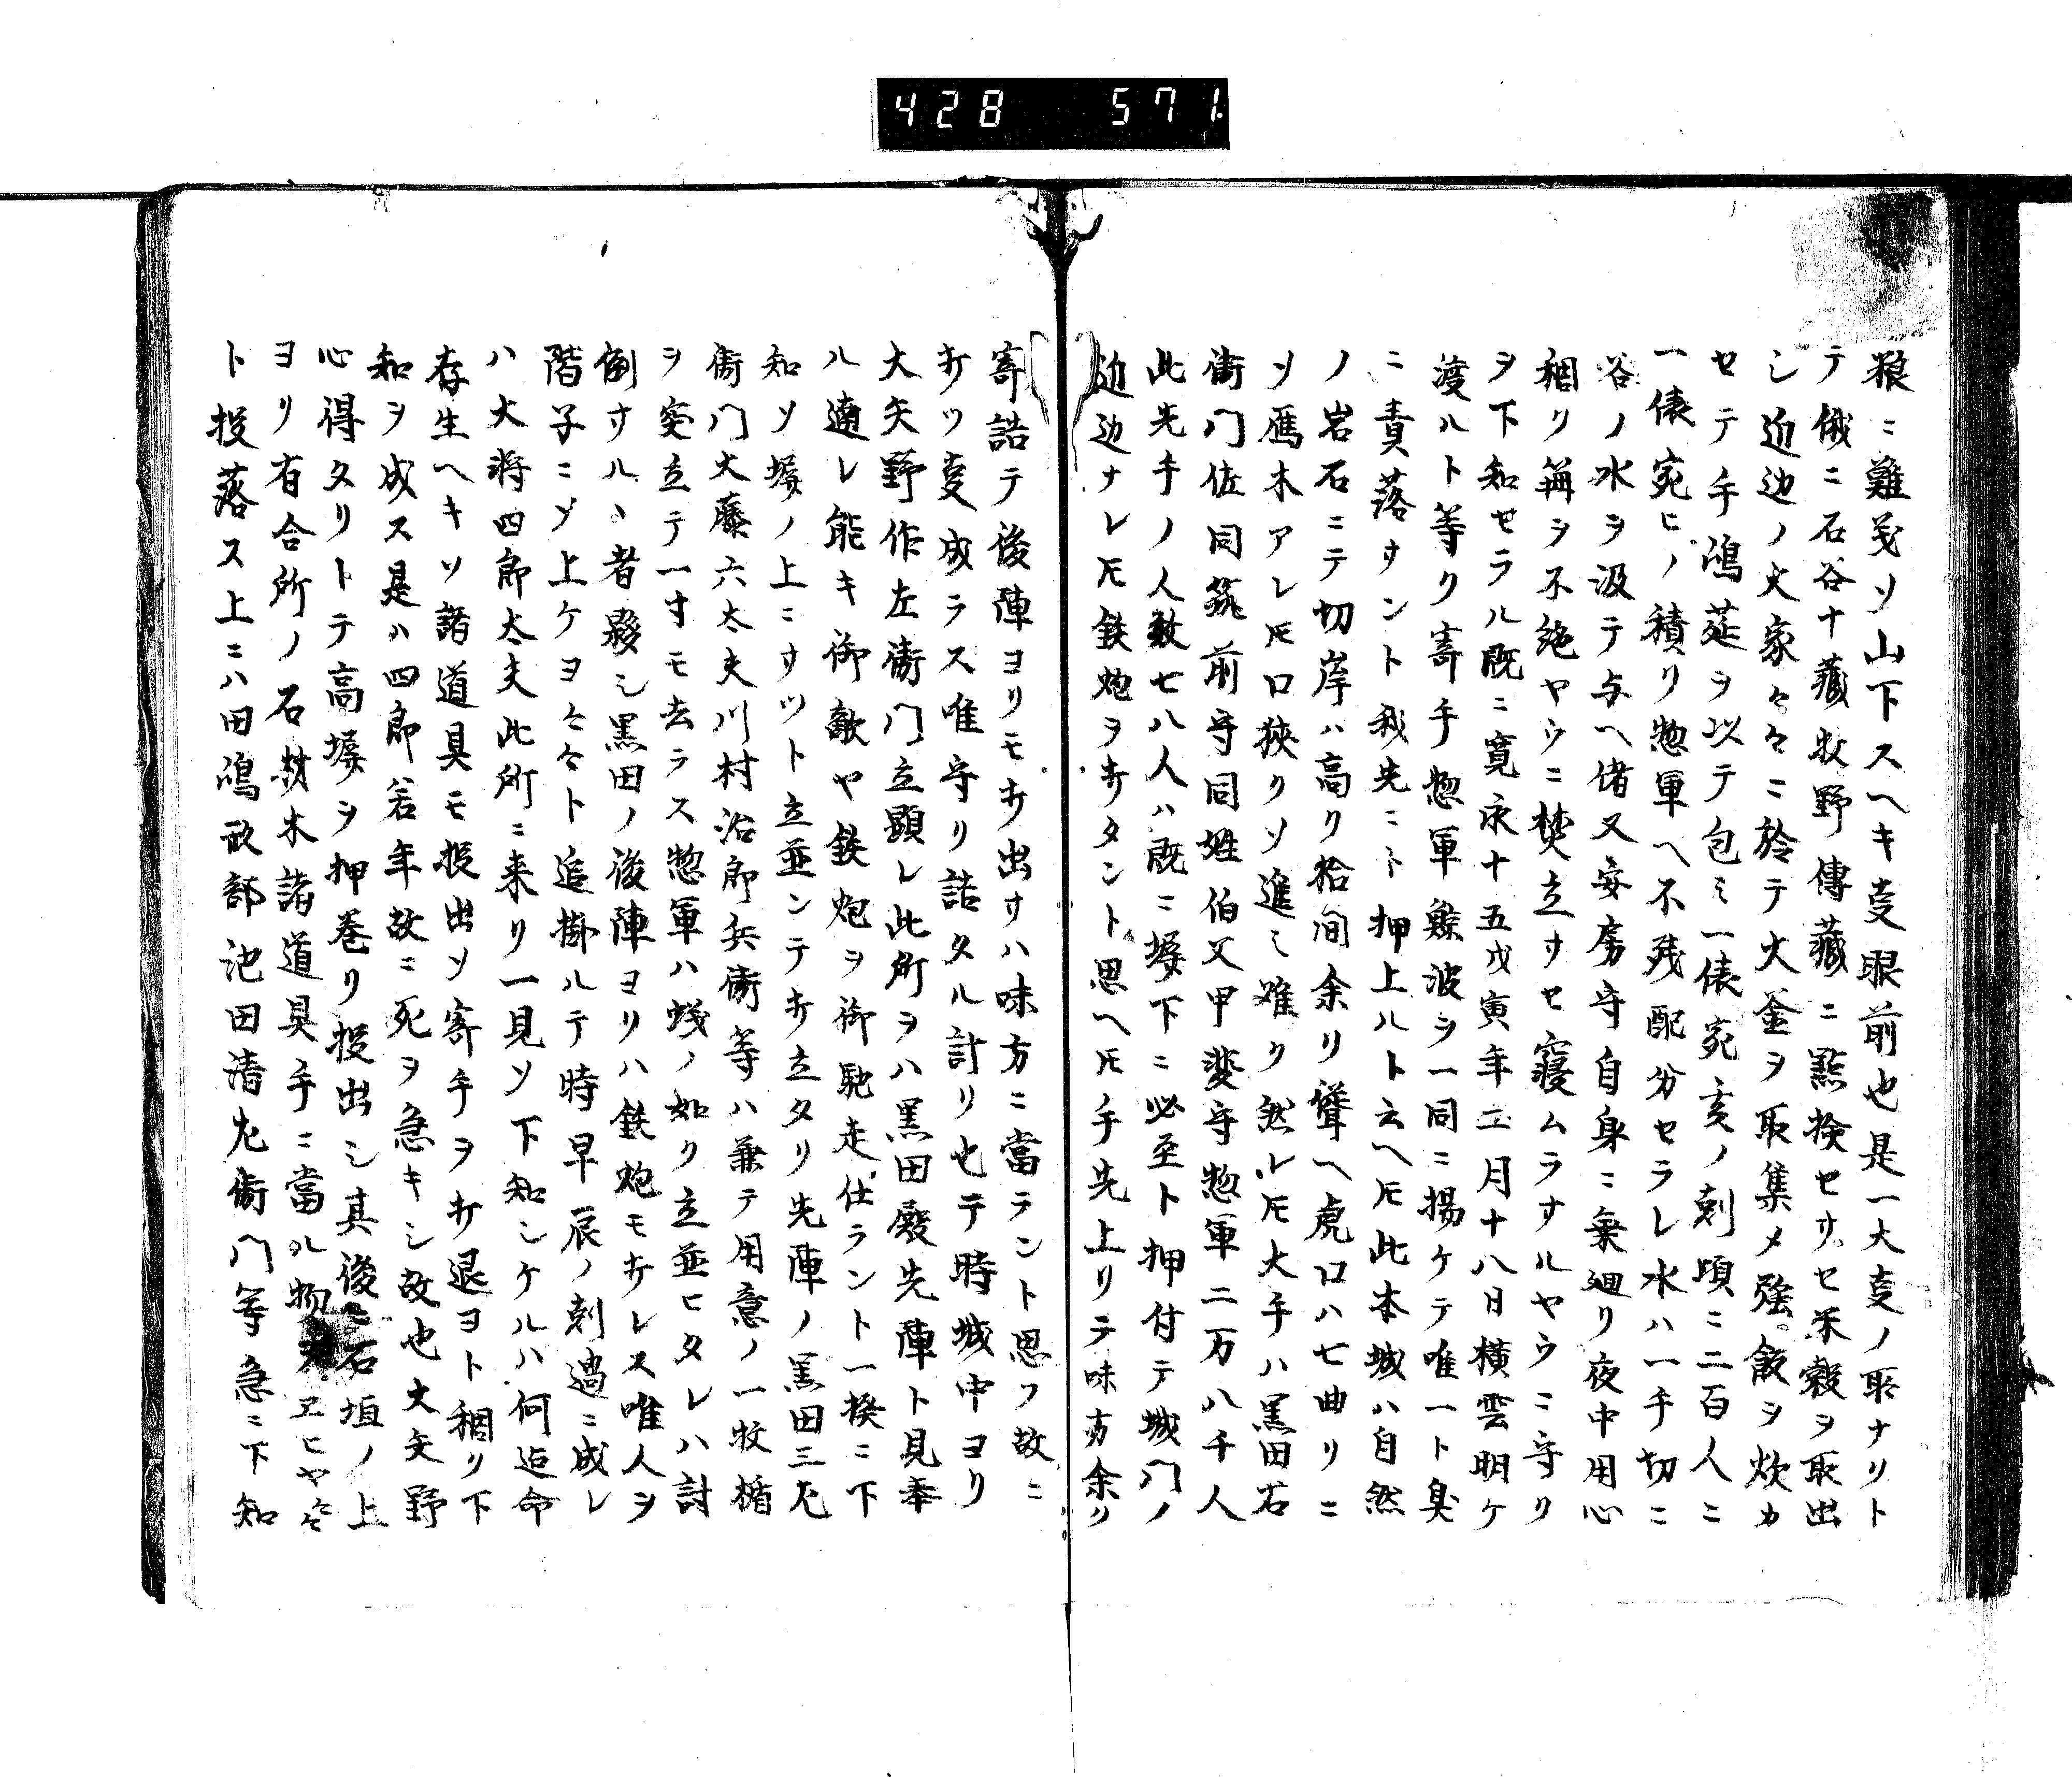 428 571
粮ニ難義ソ山下スヘキ㕝眼前也是一大㕝ノ取ナリト
テ俄ニ石谷十藏牧野傳藏ニ點検セサセ米穀ヲ取出
シ近辺ノ大家々々ニ於テ大釜ヲ取集メ強飯ヲ炊カ
セテ手鴻莚ヲ以テ包ミ一俵宛亥ノ刻頃ニ二百人ニ
一俵宛ヒノ積リ惣軍ヘ不残配分セラレ水ハ一手切ニ
谷ノ水ヲ汲テ与ヘ偖又安房守自身ニ乗廻リ夜中用心
稠リ篝ヲ不絶ヤウニ焚立サセ寝ムラサルヤウニ守リ
ヲ下知セラル既ニ寛永十五戊寅年二月十八日横雲明ケ
渡ルト等ク寄手惣軍鯨波ヲ一同ニ揚ケテ唯一ト臭
ニ責落サント我先ニト押上ルト云ヘ𪜈此本城ハ自然
ノ岩石ニテ切岸ハ高リ拾間余リ聳ヘ虎口ハ七曲リニ
ソ雁木アレ𪜈口狹クソ進ミ难ク然レ𪜈大手ハ黒田右
衛門佐同筑前守同姓伯父甲斐守惣軍二万八千人
此先手ノ人数七八人ハ既ニ塀下ニ必至ト押付テ城門ノ
辺辺ナレ𪜈鉄炮ヲ打タント思ヘ𪜈手先上リテ味方余リ
寄詰テ後陣ヨリモ打出サハ味方ニ當ラント思フ故ニ
打ツ㕝成ラス唯守リ詰タル計リ也テ時城中ヨリ
大矢野作左衛門立顕レ此所ヲハ黒田殿先陣ト見奉
ル適レ能キ御敵ヤ鉄炮ヲ御馳走仕ラント一揆ニ下
知ソ塀ノ上ニサツト立並ンテ打立タリ先陣ノ黒田三左
衛門大藤六太夫川村治郎兵衛等ハ兼テ用意ノ一枚楯
ヲ突立テ一寸モ去ラス惣軍ハ蟻ノ如ク立並ヒタレハ討
倒サルヽ者夥シ黒田ノ後陣ヨリハ鉄炮モ打レス唯人ヲ
階子ニソ上ケヨ々々ト追掛ルテ時早辰ノ刻過ニ成レ
ハ大将四郎太夫此所ニ来リ一見ソ下知シケルハ何迄命
存生ヘキソ諸道具モ投出ソ寄手ヲ打退ヨト稠リ下
知ヲ成ス是ハ四郎若年故ニ死ヲ急キシ故也大矢野
心得タリトテ高塀ヲ押巻リ投出シ其後ニ石垣ノ上
ヨリ有合所ノ石材木諸道具手ニ當ル物ヲエヒヤ々
ト投落ス上ニハ田嶋刑部池田清左衛門等急ニ下知